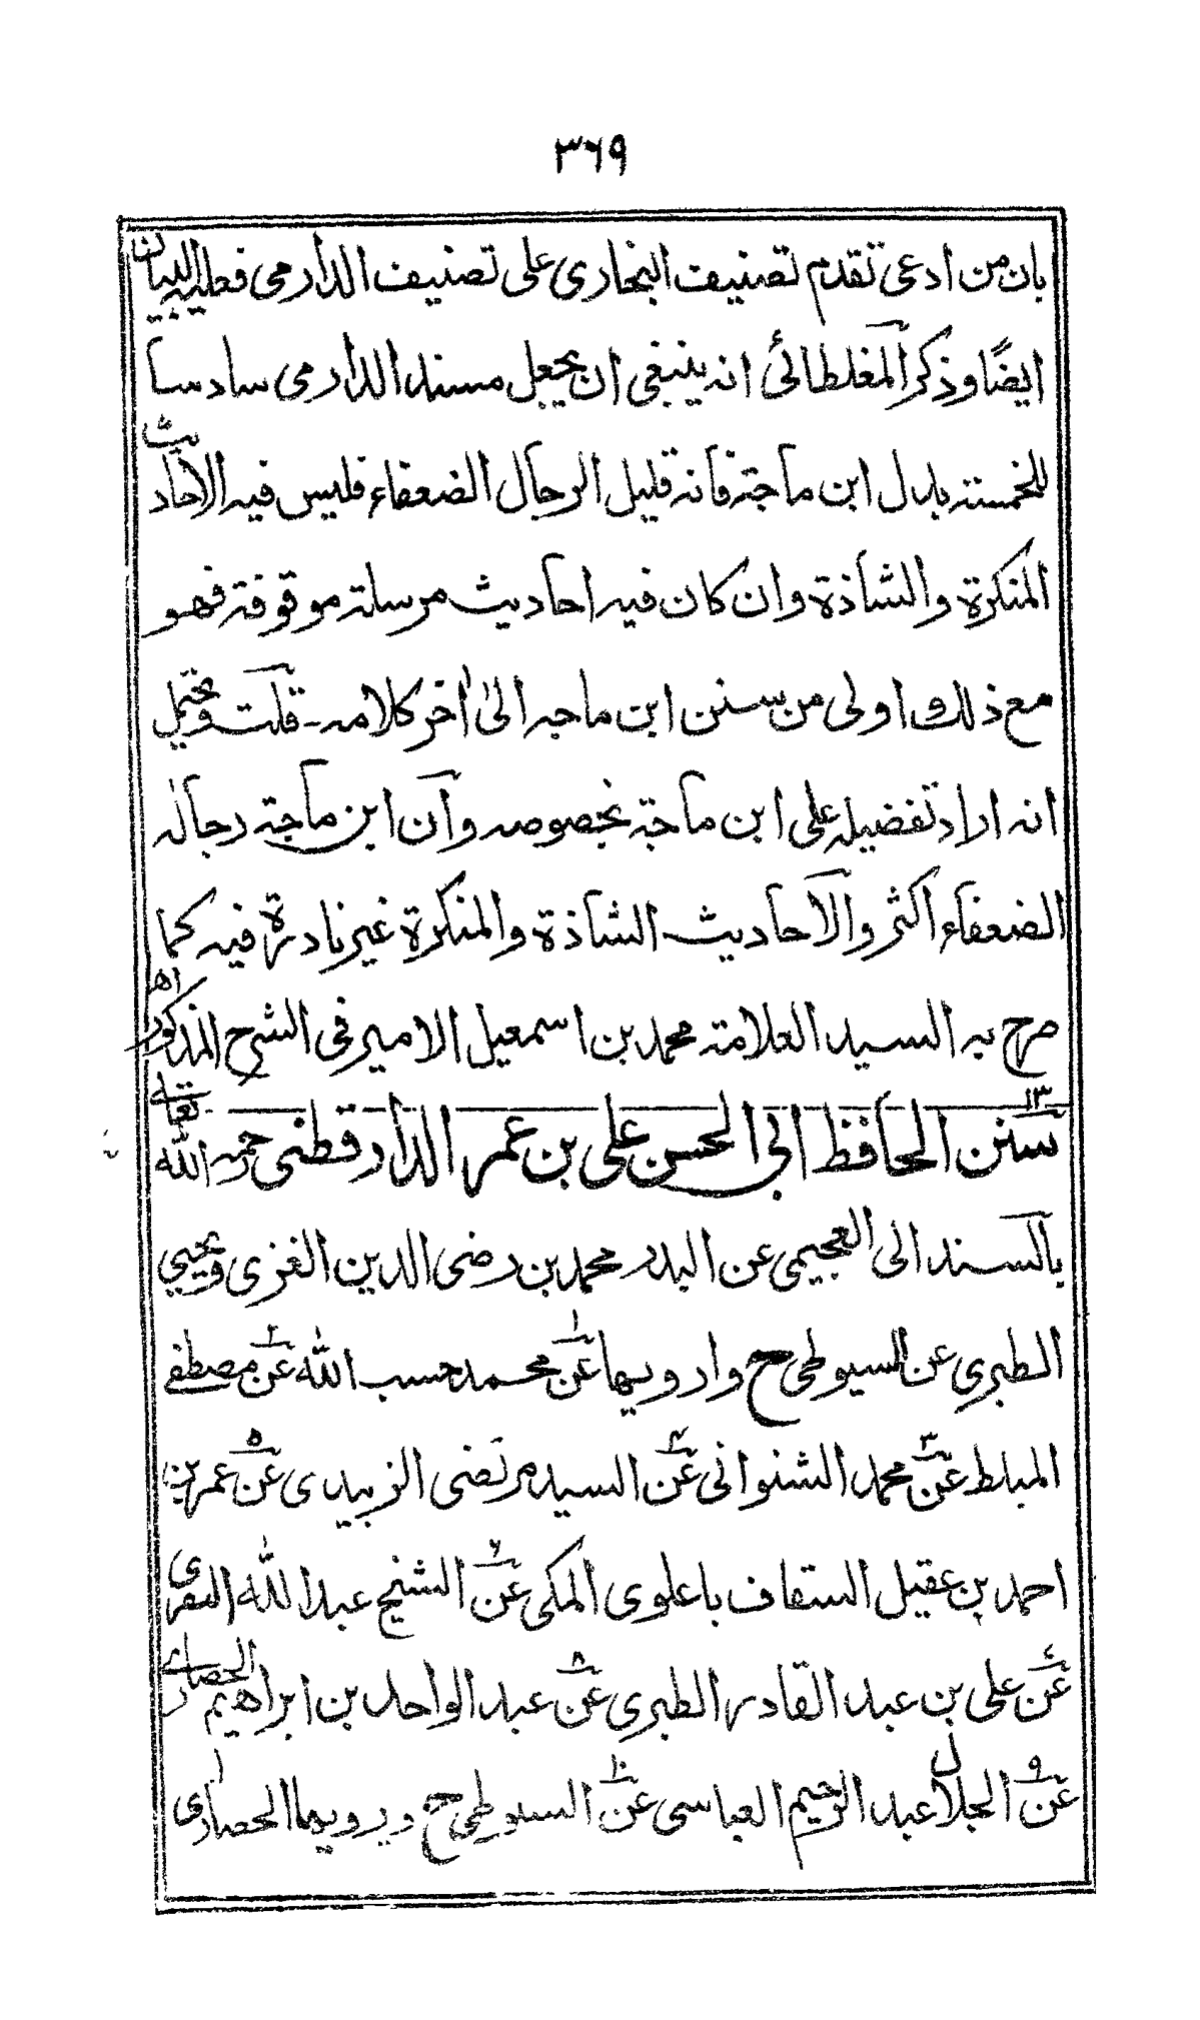 ٣٦٩
بان من ادعى تقدم تصنيف البخارى على تصنيف الدارمى فعليه البيان
ايضًا وذكر المغلطائى انه ينبغى ان يجعل مسند الدارمى سادسا
للخمسة بدل ابن ماجة فانه قليل الرجال الضعفاء فليس فيه الاحاديث
المنكرة والشاذة وان كان فيه احاديث مرسلة موقوفة فهو
مع ذلك اولى من سنن ابن ماجه الى اخر كلامه - قلت ويحتمل
انه اراد تفضيله على ابن ماجة بخصوصه وان ابن ماجة رجاله
الضعفاء اكثر والاحاديث الشاذة والمنكرة غير نادرة فيه كما
صرح به السيد العلامة محمد بن اسمعيل الامير فى الشرح المذكور اھ
١٣ سنن الحافظ ابي الحسن على بن عمر الدارقطنى رحمه الله تعالى
بالسند الى العجيمى عن البدر محمد بن رضى الدين الغزى ويحيي
الطبري عن السيوطى ح وارويها عن١ محمد حسب الله عن٢ مصطفى
المبلط عن٣ محمد الشنوانى عن٤ السيد مرتضى الزبيدى عن٥ عمر بن
احمد بن عقيل السقاف باعلوى المكى عن٦ الشيخ عبد الله البصرى
عن٧ على بن عبد القادر الطبري عن٨ عبد الواحد بن ابراهيم الحصارى
عن٩ الجلال عبد الرحيم العباسى عن١٠ السيوطى ح ويرويها الحصارى